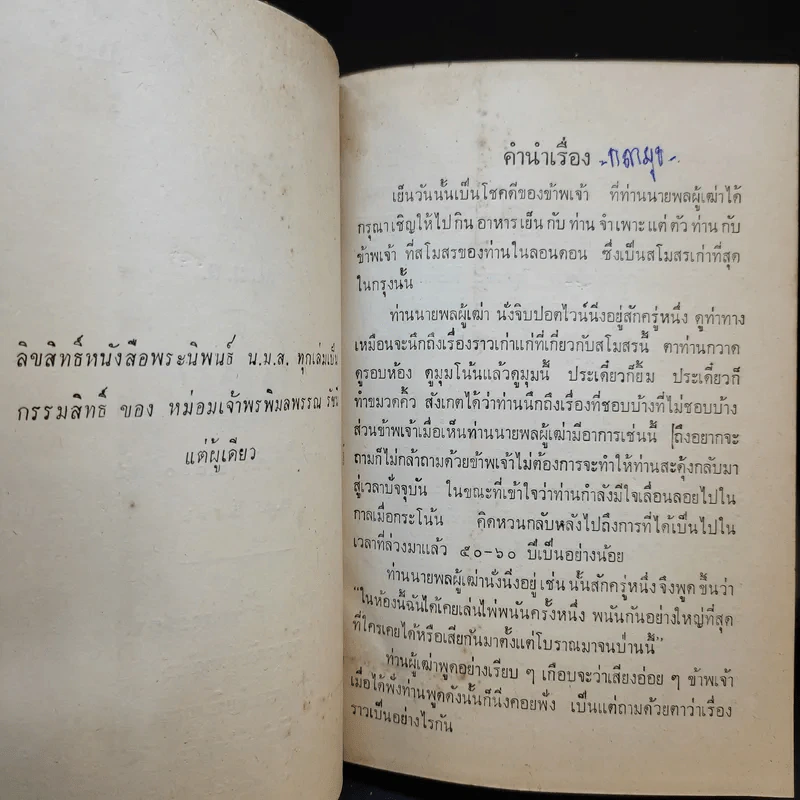 ลิขสิทธิ์หนังสือพระนิพนธ์ น.ม.ส. ทุกเล่มเป็น
กรรมสิทธิ์ ของ หม่อมเจ้าพรพิมลพรรณ รัชนี
แต่ผู้เดียว
คำนำเรื่อง
เย็นวันนั้นเป็นโชคดีของข้าพเจ้า ที่ท่านนายพลผู้เฒ่าได้
กรุณาเชิญให้ไปกินอาหารเย็นกับท่าน จำเพาะแต่ตัวท่านกับ
ข้าพเจ้า ที่สโมสรของท่านในลอนดอน ซึ่งเป็นสโมสรเก่าที่สุด
ในกรุงนั้น
ท่านนายพลผู้เฒ่า นั่งจิบปอตไวน์นิ่งอยู่สักครู่หนึ่ง ดูท่าทาง
เหมือนจะนึกถึงเรื่องราวเก่าแก่ที่เกี่ยวกับสโมสรนี้ ตาท่านกวาด
ดูรอบห้อง ดูมุมโน้นแล้วดูมุมนี้ ประเดี๋ยวก็ยิ้ม ประเดี๋ยวก็
ทำขมวดคิ้ว สังเกตได้ว่าท่านนึกถึงเรื่องที่ชอบบ้างที่ไม่ชอบบ้าง
ส่วนข้าพเจ้าเมื่อเห็นท่านนายพลผู้เฒ่ามีอาการเช่นนี้ ถึงอยากจะ
ถามก็ไม่กล้าถามด้วยข้าพเจ้าไม่ต้องการจะทำให้ท่านสะดุ้งกลับมา
สู่เวลาปัจจุบัน ในขณะที่เข้าใจว่าท่านกำลังมีใจเลื่อนลอยไปใน
กาลเมื่อกระโน้น คิดหวนกลับหลังไปถึงการที่ได้เป็นไปใน
เวลาที่ล่วงมาแล้ว ๕๐-๖๐ ปีเป็นอย่างน้อย
ท่านนายพลผู้เฒ่านั่งนิ่งอยู่เช่นนั้นสักครู่หนึ่ง จึงพูดขึ้นว่า
"ในห้องนี้ฉันได้เคยเล่นไพ่พนันครั้งหนึ่ง พนันกันอย่างใหญ่ที่สุด
ที่ใครเคยได้หรือเสียกันมาตั้งแต่โบราณมาจนป่านนี้"
ท่านผู้เฒ่าพูดอย่างเรียบ ๆ เกือบจะว่าเสียงอ่อย ๆ ข้าพเจ้า
เมื่อได้ฟังท่านพูดดังนั้นก็นิ่งคอยฟัง เป็นแต่ถามด้วยตาว่าเรื่อง
ราวเป็นอย่างไรกัน